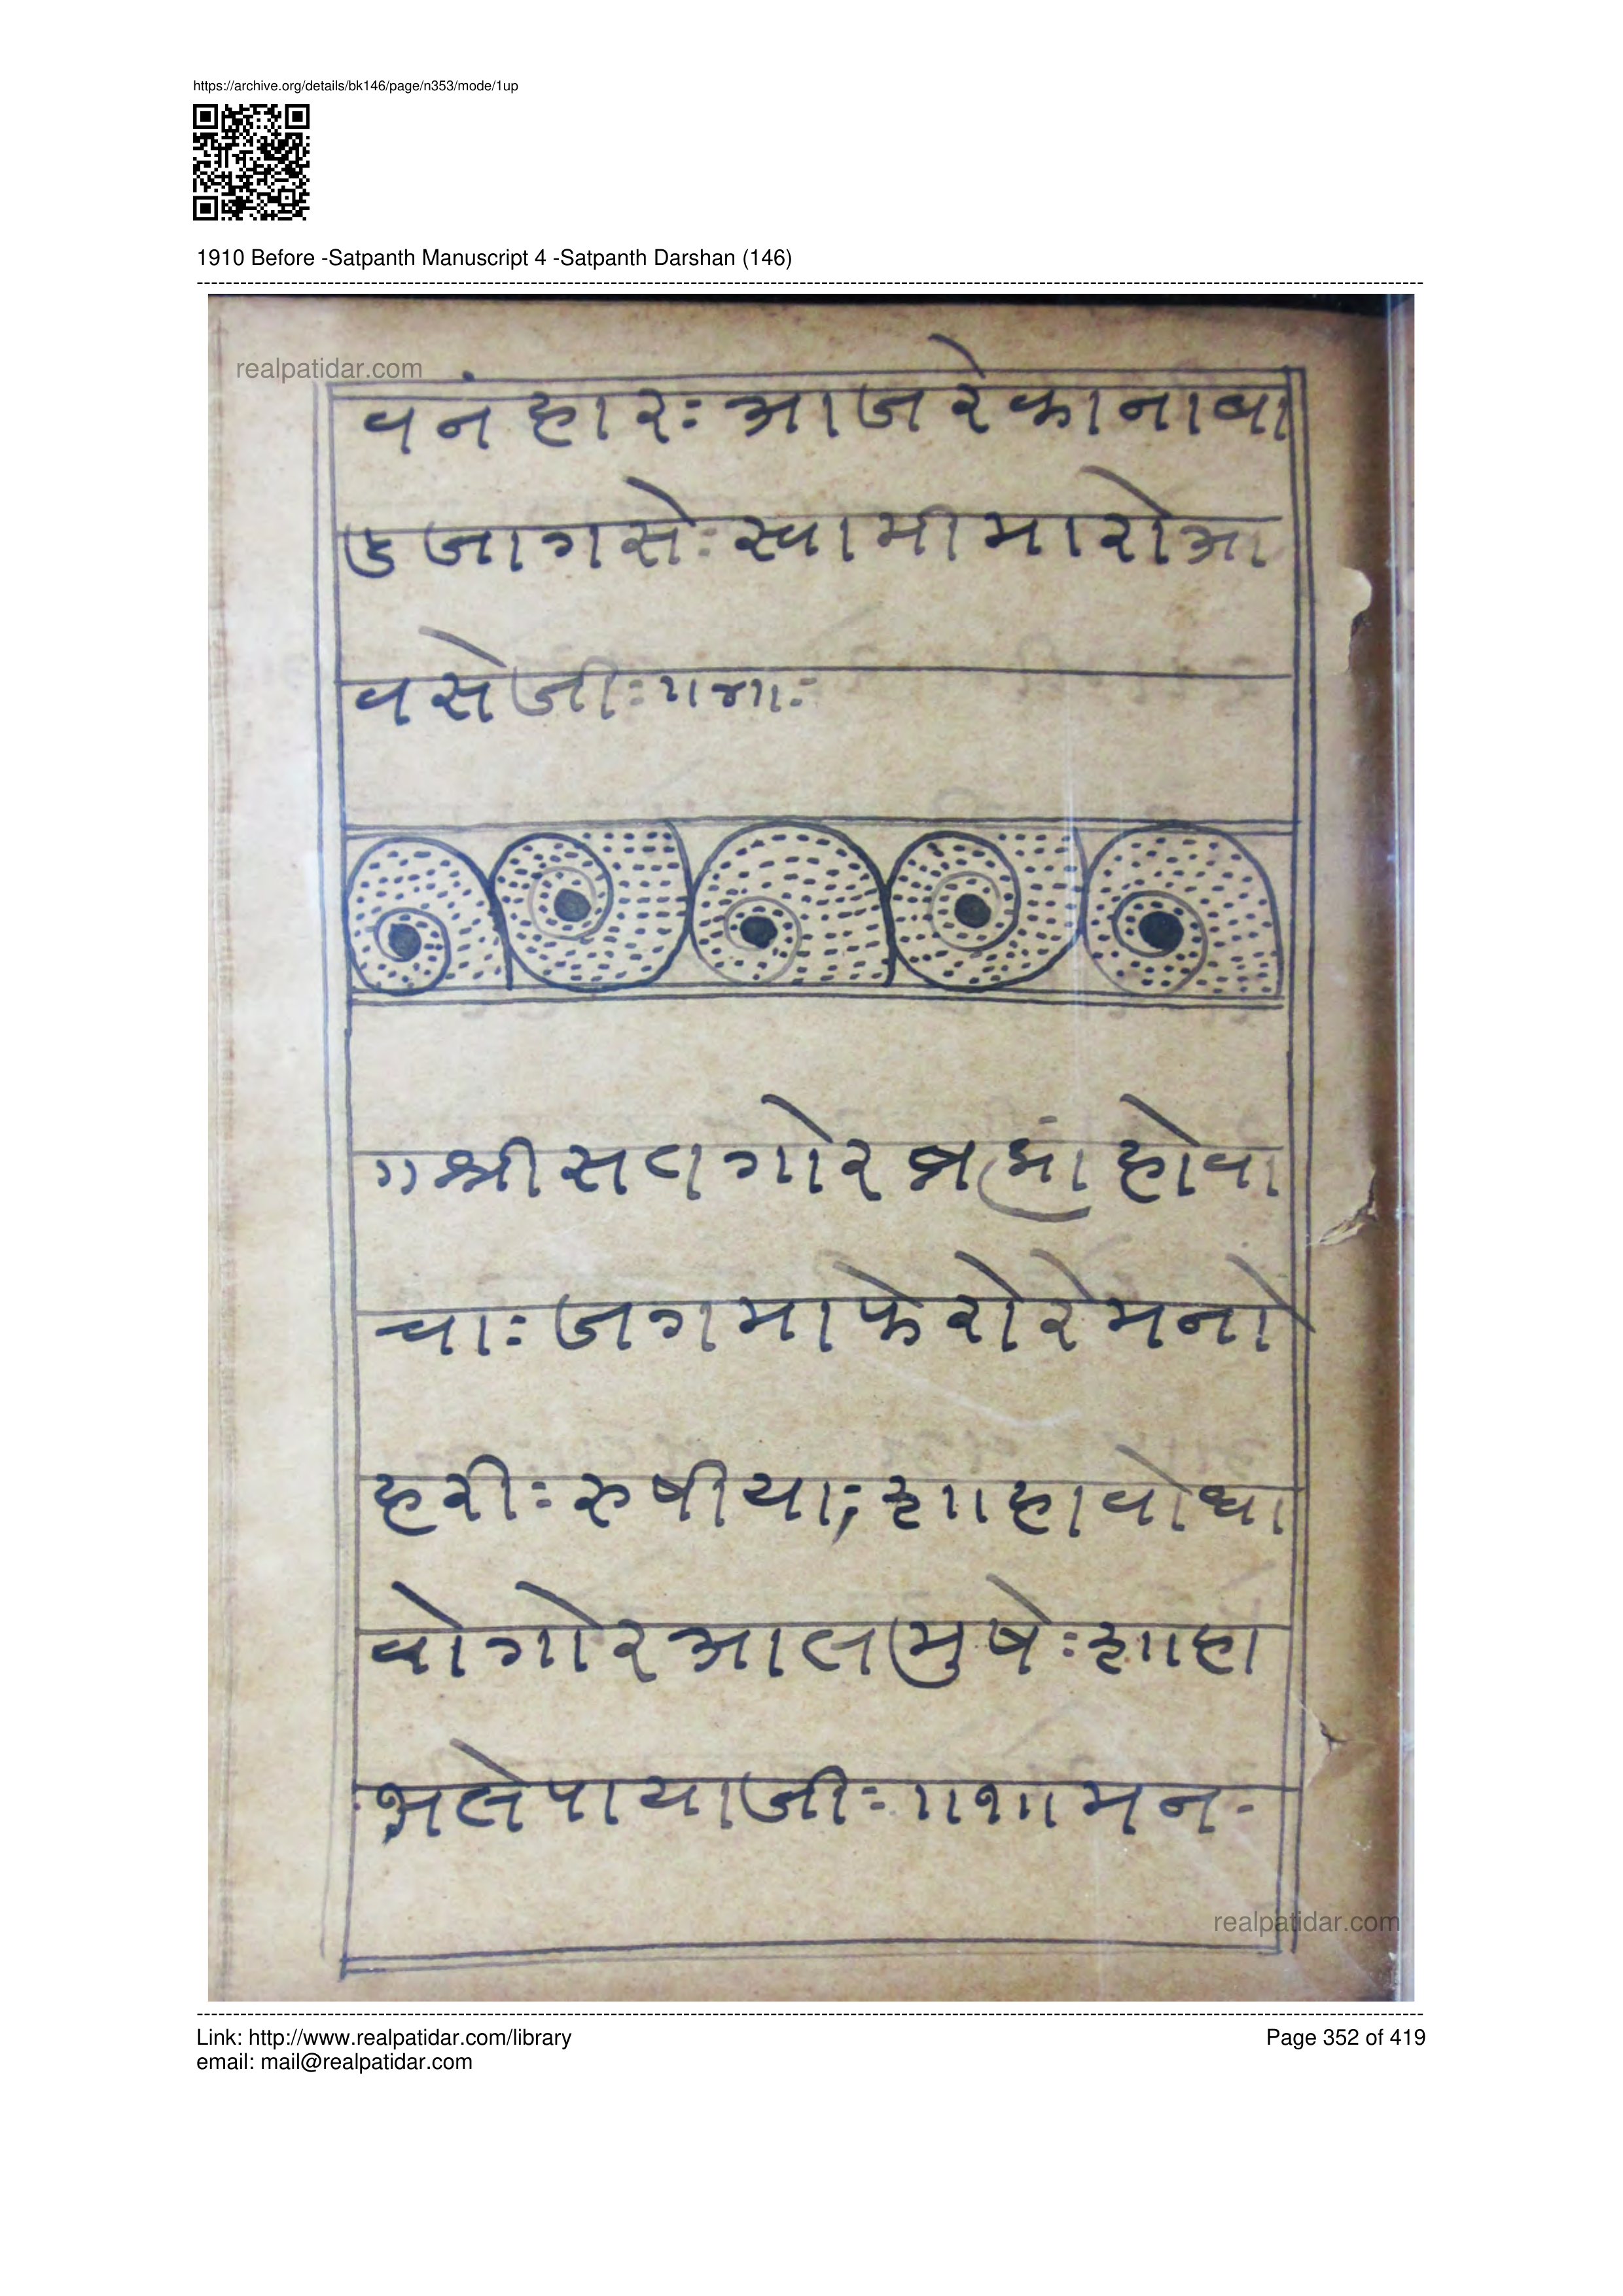 https://archive.org/details/bk146/page/n353/mode/1up
1910 Before -Satpanth Manuscript 4 -Satpanth Darshan (146)
realpatidar.com
वनं हारः आज रे काना वा
उ जागसेः स्वामी मारो आ
वसे जीः
॥ श्री सत गोर ब्रह्मां हो वा
चाः जग मा फेरो रे मनो
हरीः रुषीया; ॥हा वो धा
वो गोर आल मुषेः ॥हा
भले पाया जीः ॥१॥ मन-
realpatidar.com
Link: http://www.realpatidar.com/library
Page 352 of 419
email: mail@realpatidar.com